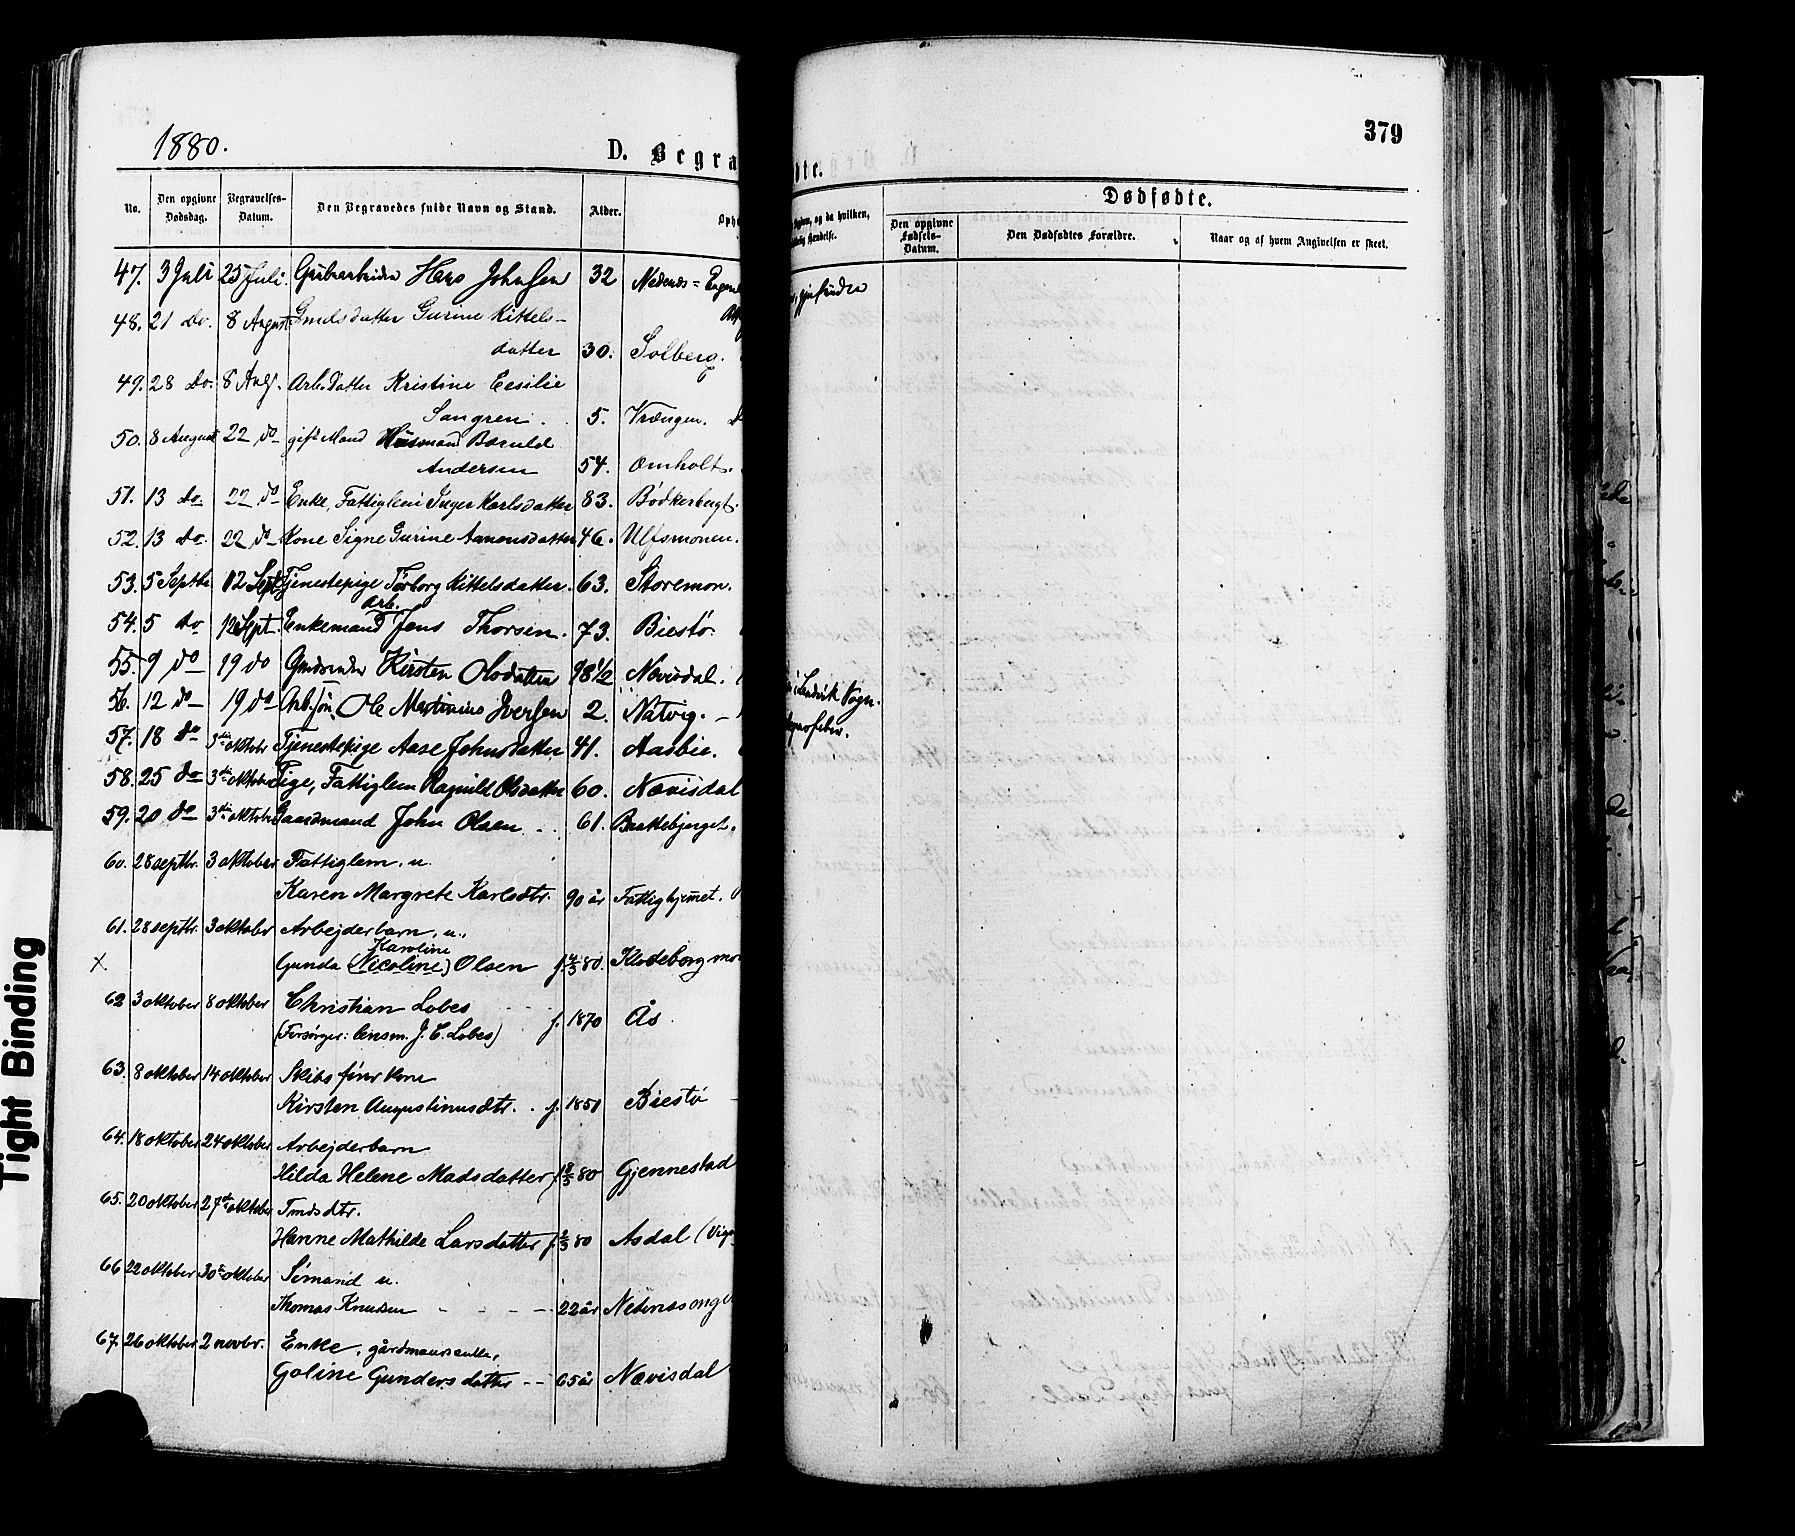 1880.
D. Begra
No.
Den opgivne Dødsdag.
Begravelses-Datum.
Den Begravedes fulde Navn og Stand.
Alder.
Opho
47. 3 Juli 25 Juli. Hans Johnsen 32 Nedenes =
48. 21 do. 8 August Gmdsdatter Gurine Kittels-
datter 30. Solberg.
49. 28 do. 8 Aug. Arb.datter Kristine Cesilie
Sangren. 5. Vrængen.
50. 8 August 22 do gift Mand Husmand
Andersen 54. Omholt.
51. 13 do. 22 do Enke, Fattiglem Inger Karlsdatter 83.
52. 13 do. 22 do Kone Signe Gurine Aanonsdatter 46. Ulfsmonen.
53. 5 Septbr 12 Sept Tjenestepige Torborg Kittelsdatter. 63. Storemon.
Arb.
54. 5 do 12 Sept. Enkemand Jens Thorsen. 73. Biestø.
55. 9 do 19 do Kirsten Olsdatter 98 1/2 Nævisdal.
56. 12 do 19 do Arb. søn, Ole Martinius Iversen 2. Natvig.
57. 18 do 3die oktobr Tjenestepige Aase Johnsdatter 41. Aasbie.
58. 25 do 3die oktober Pige, Fattiglem Ragnild Olsdatter 60. Nævisdal
59. 20 do 3die oktober Gaardmand John Olsen 61. Bakkebjerget.
60. 28 septbr. 3 oktober Fattiglem, u.
Karen Margrete Karlsdtr. 90 år Fattighjemet.
61. 28 septbr. 3 oktober Arbejderbarn, u.
Karoline
x Gunda (Nicoline) Olsen f. 4/5 80. Klodeborg mo
62 3 oktober 8 oktober Christian Lobes
(Forsørger: lensm. J. C. Lobes) f. 1870 Ås
63. 8 oktober 14 oktober Skibsfører kone
Kirsten Augustinusdtr. f. 1851 Biestø
64. 18 oktober 24 oktober Arbejderbarn
Hilda Helene Madsdatter f 80 Gjennestad
65. 20 oktober 27de oktober Gmdsdtr.
Hanne Mathilde Larsdatter f. 80 Asdal
66 22 oktober 30te oktober Sømand u.
Thomas Knudsen 22 år Nedenæs
67. 26 oktober 2 novbr. Enke, gårdmandsenke,
Goline Gundersdatter 65 år Nævisdal
379
dte.
Dødsfødte.
Sygdom, og da hvilken,
Hændelse.
Den opgivne Fødsels-Datum.
Den Dødfødtes Forældre.
Naar og af hvem Angivelsen er skeet.
Landvik Sogn.
Tight Binding